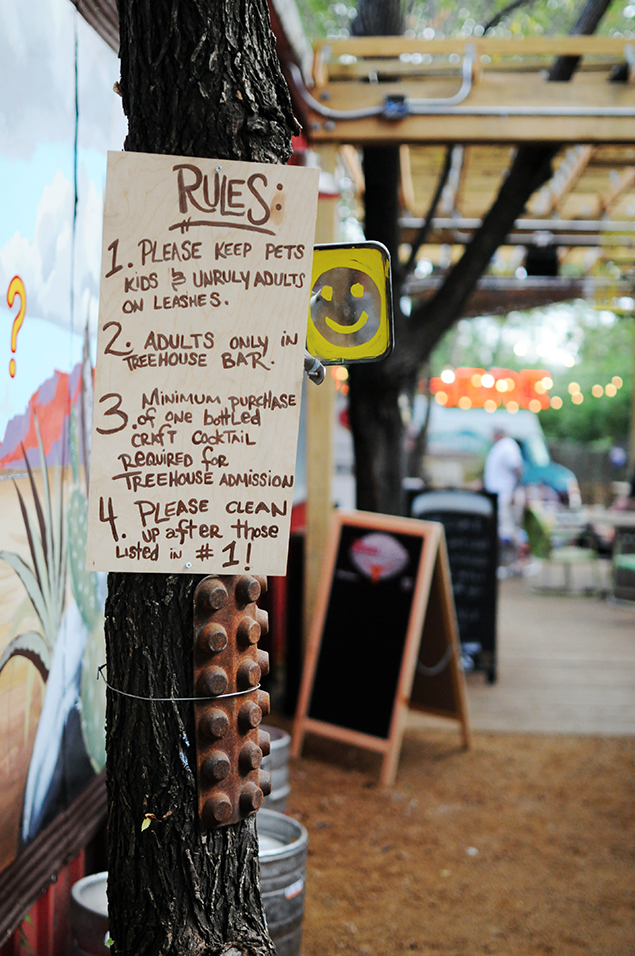 RULES:
1. PLEASE KEEP PETS
KIDS & UNRULY ADULTS
ON LEASHES.
2. ADULTS ONLY IN
TREEHOUSE BAR.
3. MINIMUM PURCHASE
of one bottled
craft cocktail
REQUIRED for
TREEHOUSE ADMISSION
4. PLEASE CLEAN
up after those
Listed in #1!
?